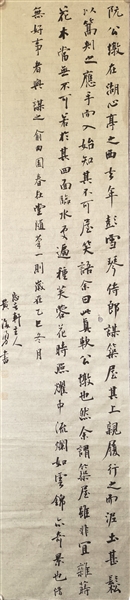 阮公墩在湖心亭之西去年彭雪琴侍郎謀築屋其上親履行之而泥土甚鬆
以篙刺之應手而入始知其不可屋笑語余曰此真軟公墩也然余謂築屋雖非宜雜蒔
花木當無不可若於其四面臨水處遍種芙蓉花時照耀中流爛如雲錦亦奇景也惜
無好事者與謀之 俞曲園春在堂隨筆一則歲在乙巳冬月
軒主人
書